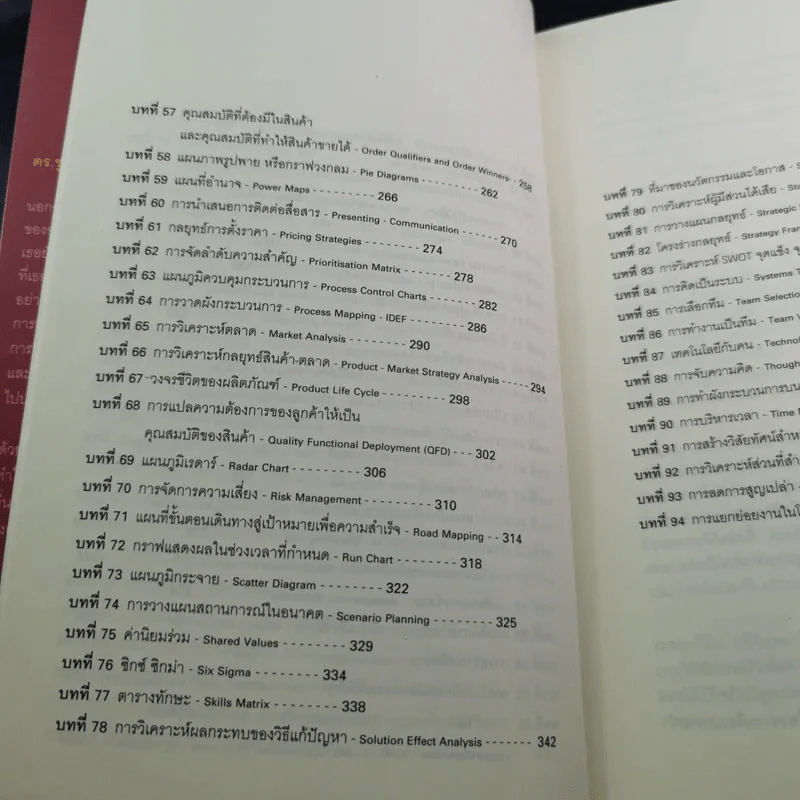 บทที่ 57 คุณสมบัติที่ต้องมีในสินค้า
และคุณสมบัติที่ทำให้สินค้าขายได้ - Order Qualifiers and Order Winners- - 258
บทที่ 58 แผนภาพรูปพาย หรือกราฟวงกลม - Pie Diagrams - - - - - - - - 262
บทที่ 59 แผนที่อำนาจ - Power Maps - - - - - - - - 266
บทที่ 60 การนำเสนอการติดต่อสื่อสาร - Presenting - Communication - - - - - 270
บทที่ 61 กลยุทธ์การตั้งราคา - Pricing Strategies - - - - - - - - 274
บทที่ 62 การจัดลำดับความสำคัญ - Prioritisation Matrix - - - - - - - 278
บทที่ 63 แผนภูมิควบคุมกระบวนการ - Process Control Charts - - - - - - - 282
บทที่ 64 การวาดผังกระบวนการ - Process Mapping - IDEF - - - - - - - 286
บทที่ 65 การวิเคราะห์ตลาด - Market Analysis - - - - - - - - 290
บทที่ 66 การวิเคราะห์กลยุทธ์สินค้า-ตลาด - Product - Market Strategy Analysis - - - - 294
บทที่ 67 วงจรชีวิตของผลิตภัณฑ์ - Product Life Cycle - - - - - - - - 298
บทที่ 68 การแปลความต้องการของลูกค้าให้เป็น
คุณสมบัติของสินค้า - Quality Functional Deployment (QFD) - - - 302
บทที่ 69 แผนภูมิเรดาร์ - Radar Chart - - - - - - - - 306
บทที่ 70 การจัดการความเสี่ยง - Risk Management - - - - - - - - 310
บทที่ 71 แผนที่ขั้นตอนเดินทางสู่เป้าหมายเพื่อความสำเร็จ - Road Mapping - - 314
บทที่ 72 กราฟแสดงผลในช่วงเวลาที่กำหนด - Run Chart - - - - - - - 318
บทที่ 73 แผนภูมิกระจาย - Scatter Diagram - - - - - - - - 322
บทที่ 74 การวางแผนสถานการณ์ในอนาคต - Scenario Planning - - - - - - - 325
บทที่ 75 ค่านิยมร่วม - Shared Values - - - - - - - - 329
บทที่ 76 ซิกซ์ ซิกม่า - Six Sigma - - - - - - - - 334
บทที่ 77 ตารางทักษะ - Skills Matrix - - - - - - - - 338
บทที่ 78 การวิเคราะห์ผลกระทบของวิธีแก้ปัญหา - Solution Effect Analysis - - - - - - 342
บทที่ 79 ที่มาของนวัตกรรมและโอกาส -
บทที่ 80 การวิเคราะห์ผู้มีส่วนได้เสีย -
บทที่ 81 การวางแผนกลยุทธ์ - Strategic
บทที่ 82 โครงร่างกลยุทธ์ - Strategy
บทที่ 83 การวิเคราะห์ SWOT จุดแข็ง
บทที่ 84 การคิดเป็นระบบ - Systems
บทที่ 85 การเลือกทีม - Team
บทที่ 86 การทำงานเป็นทีม - Team
บทที่ 87 เทคโนโลยีกับคน -
บทที่ 88 การจับความคิด -
บทที่ 89 การทำผังกระบวนการบน
บทที่ 90 การบริหารเวลา - Time
บทที่ 91 การสร้างวิสัยทัศน์
บทที่ 92 การวิเคราะห์ส่วนที่
บทที่ 93 การลดการสูญเปล่า -
บทที่ 94 การแยกย่อยงานใน